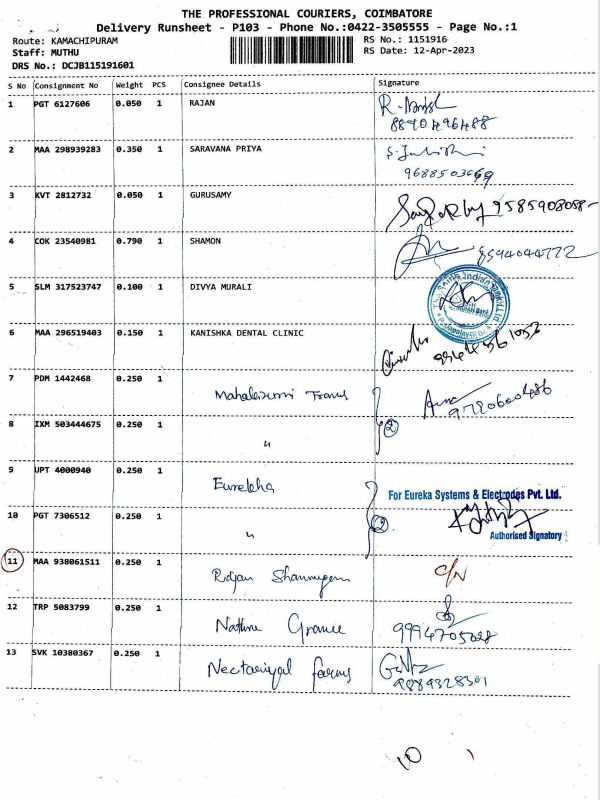 THE PROFESSIONAL COURIERS, COIMBATORE
Delivery Runsheet - P103 - Phone No.:0422-3505555 - Page No.:1
Route: KAMACHIPURAM
RS No.: 1151916
Staff: MUTHU
RS Date: 12-Apr-2023
DRS No.: DCJB115191601
S No Consignment No Weight PCS Consignee Details Signature
1 PGT 6127606 0.050 1 RAJAN
8890496488
2 MAA 298939283 0.350 1 SARAVANA PRIYA
9688503669
3 KVT 2812732 0.050 1 GURUSAMY 9585908088
4 COK 23540981 0.790 1 SHAMON
9594044772
5 SLM 317523747 0.100 1 DIVYA MURALI
6 MAA 296519403 0.150 1 KANISHKA DENTAL CLINIC
7 PDM 1442468 0.250 1 Mahalaxmi Trans
8 IXM 503444675 0.250 1 " 2
9 UPT 4000940 0.250 1 Eurekha
For Eureka Systems & Electrodes Pvt. Ltd.
10 PGT 7306512 0.250 1 " 2
Authorised Signatory
11 MAA 938061511 0.250 1 Rajan Shanmugam C/N
12 TRP 5083799 0.250 1
9994705028
13 SVK 10380367 0.250 1 Nectariyal farms
9089328301
10 1